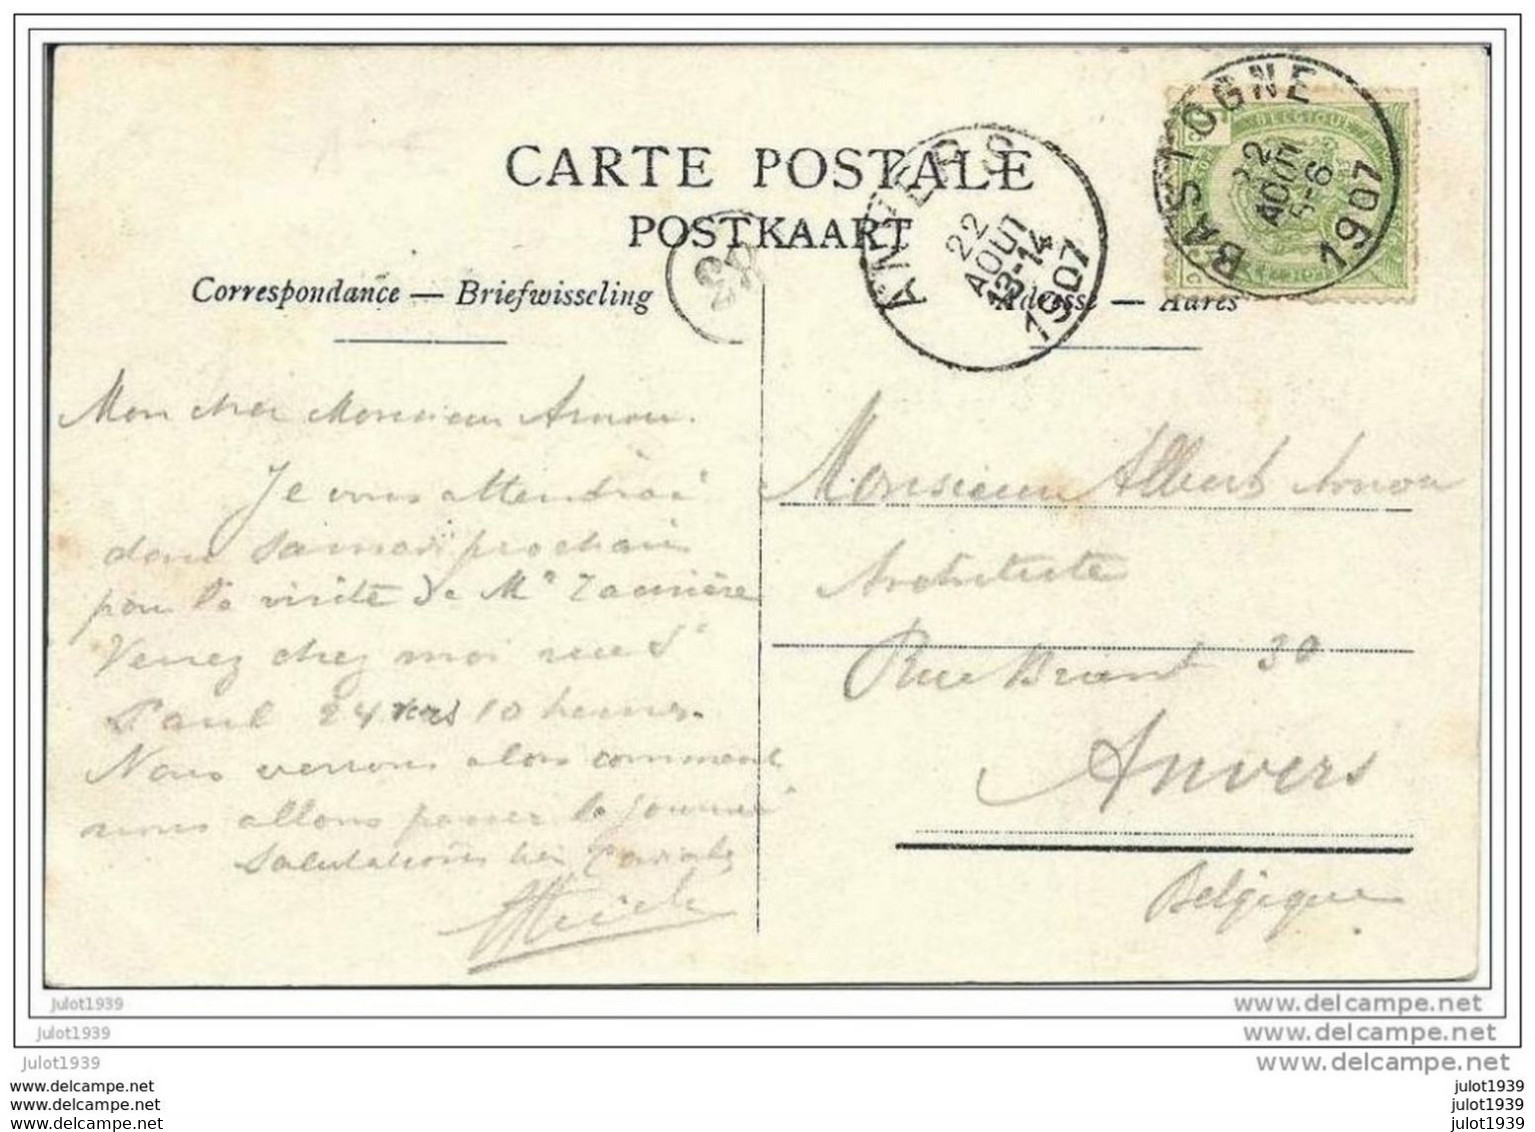 CARTE POSTALE
POSTKAART
Correspondance — Briefwisseling
Adresse — Adres
BASTOGNE
22
AOUT
5-6
1907
BELGIQUE
ANVERS
22
AOUT
13-14
1907
Mon cher Monsieur Arnou.
Je vous attendrai
donc Samedi prochain
pour la visite de Mr
Venez chez moi rue St
Paul 24 vers 10 heures.
Nous verrons alors comment
nous allons passer la journée
Salutations
Monsieur Albert Arnou
Architecte
Rue Brant 30
Anvers
Belgique
julot1939
www.delcampe.net
julot1939
www.delcampe.net
julot1939
www.delcampe.net
www.delcampe.net
www.delcampe.net
www.delcampe.net
julot1939
julot1939
julot1939